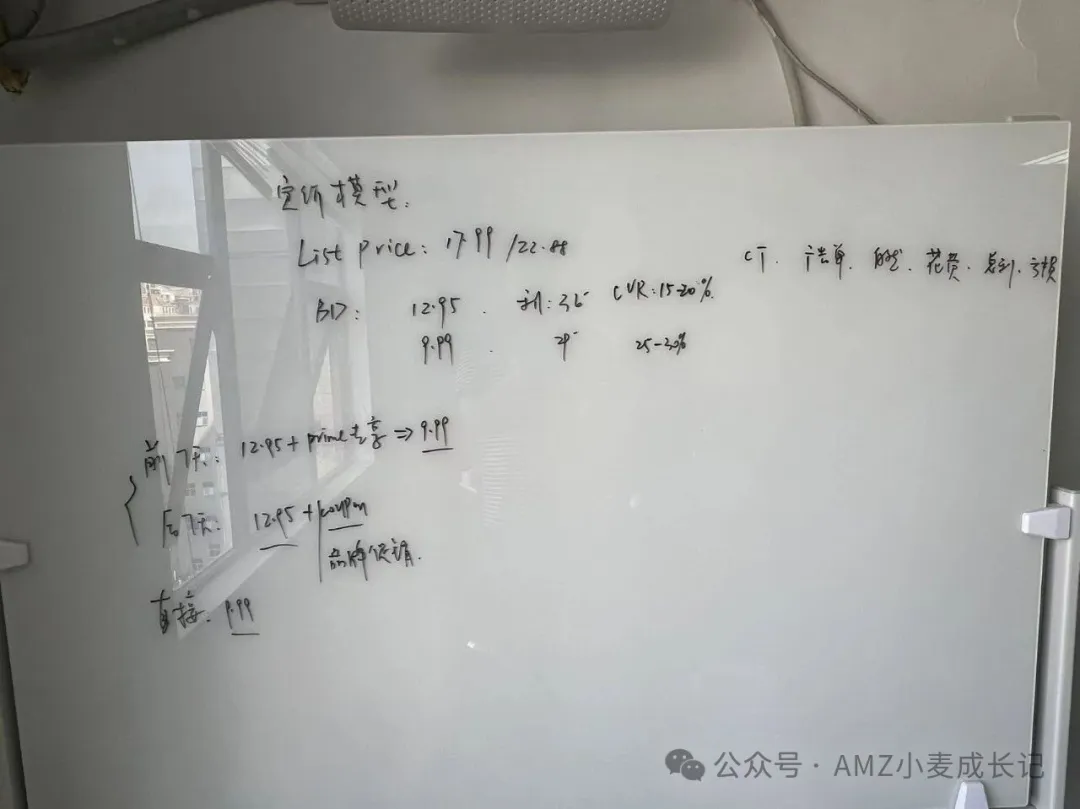 定价模型:
List price: 17.99 /22.88
BD: 12.95 . 利: 36 CVR: 15-20%.
9.99 . 29 25-30%
单. 自然. 花费. 总利.
前7天: 12.95 + prime专享 ⇒ 9.99
后7天: 12.95 + coupon
品牌促销.
直接. 9.99
公众号 · AMZ小麦成长记